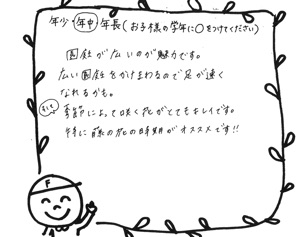 年少 年中 年長(お子様の学年に○をつけてください)
園庭が広いのが魅力です。
広い園庭をかけまわるので足が速く
なれるかも。
そして
季節によって咲く花がとてもキレイです。
特に藤の花の時期がオススメです!!
F